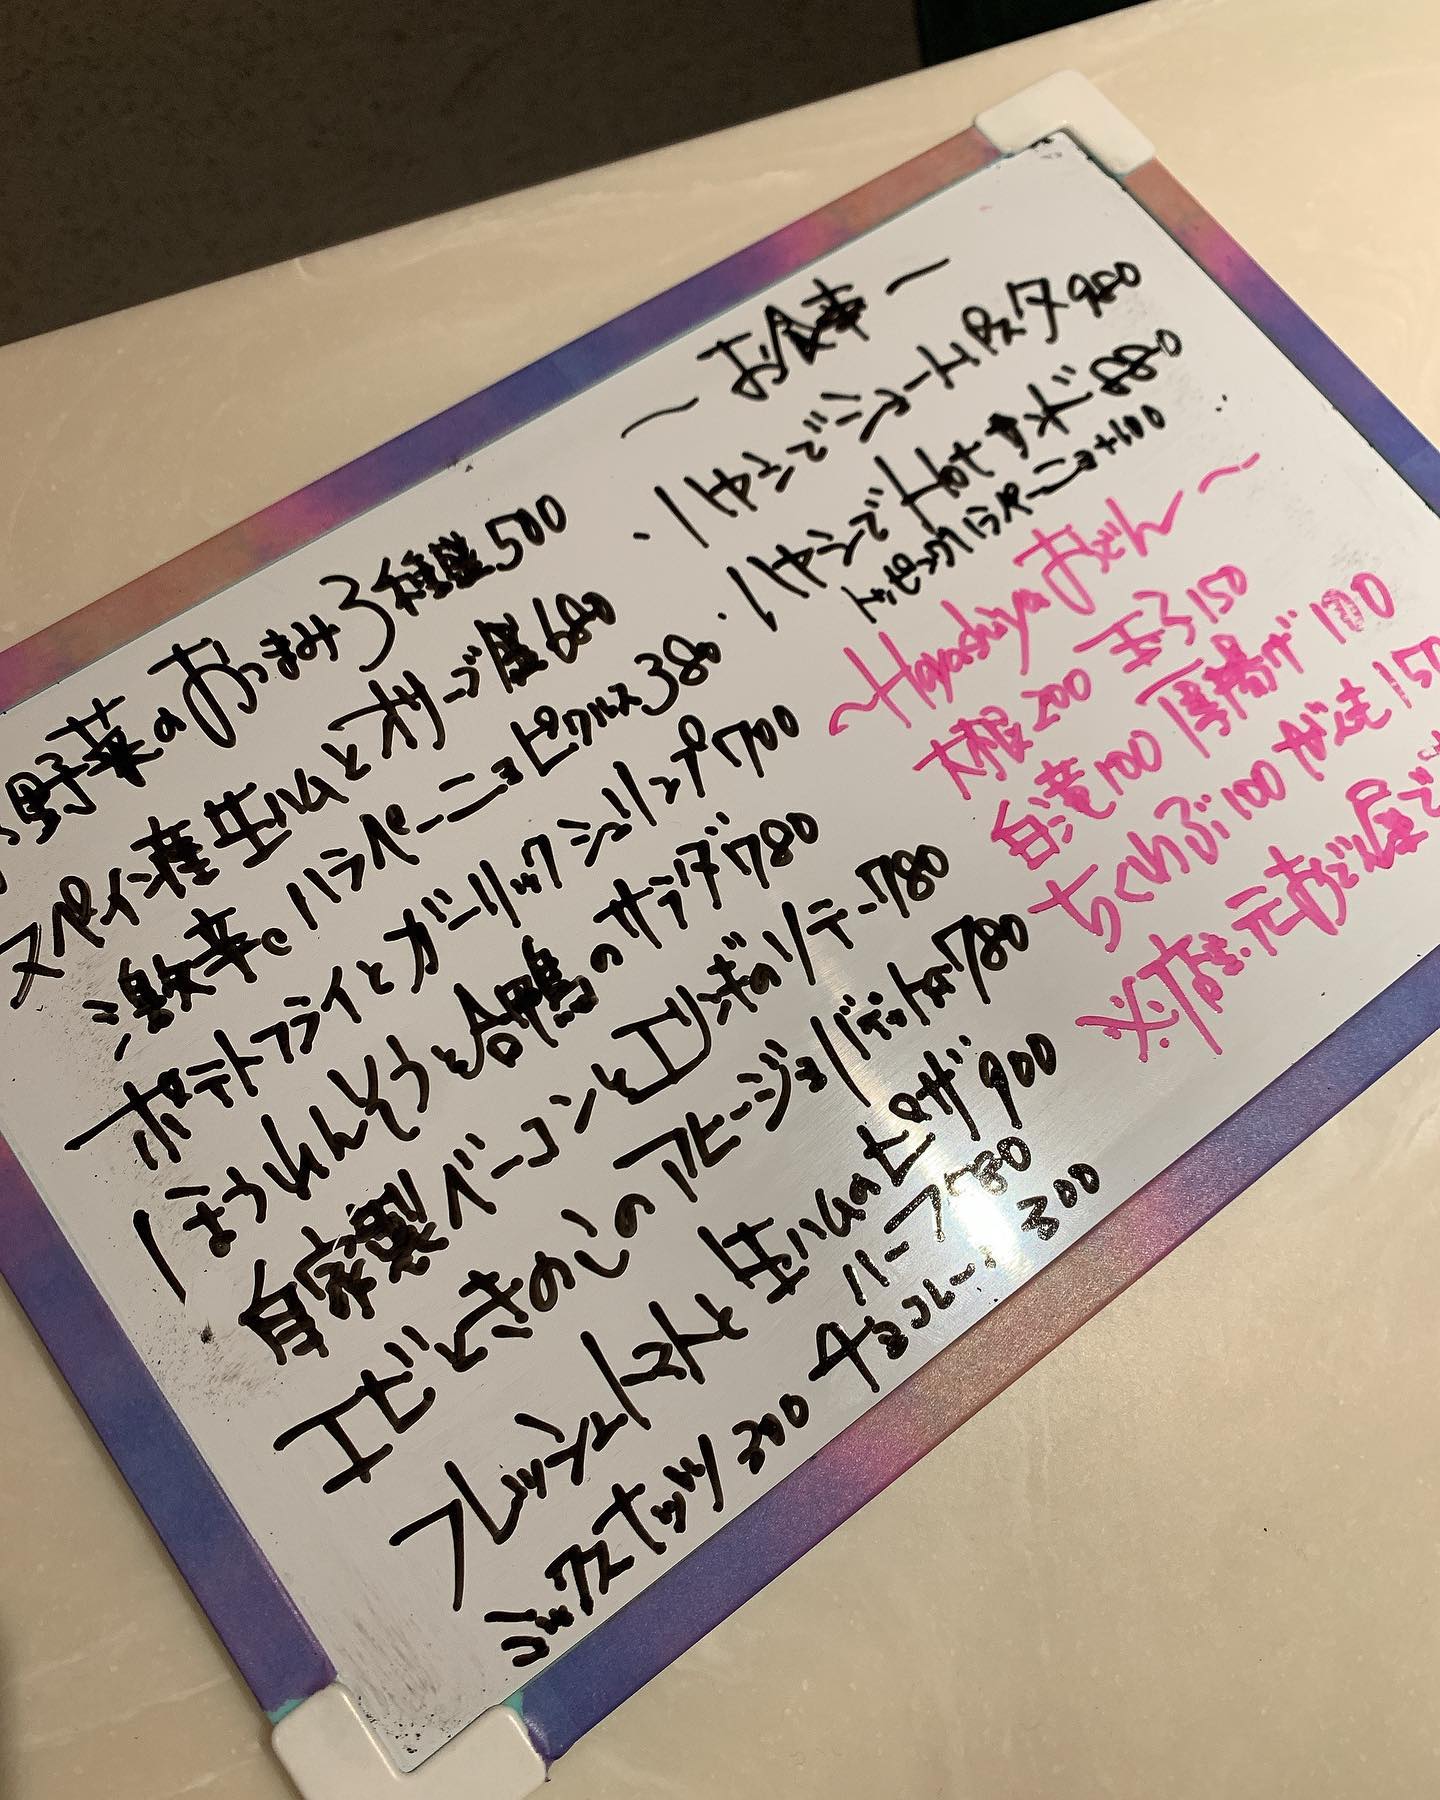 野菜のおつまみ3種盛500
スペイン産生ハムとオリーブ盛680
激辛ハラペーニョピクルス380
ポテトフライとガーリックシュリンプ700
ほうれんそうと合鴨のサラダ780
自家製ベーコンとエリンギのソテー780
エビときのこのアヒージョ バゲット付780
フレッシュトマトと生ハムのピザ900
ハーフ780
ミックスナッツ300 チョコレート300
〜お食事〜
パスタ980
Hotサンド880
トッピングハラペーニョ+100
〜Hayashiyaおでん〜
大根200 玉子150
白滝100 厚揚げ100
ちくわぶ100 がんも150
※店主、元おでん屋で